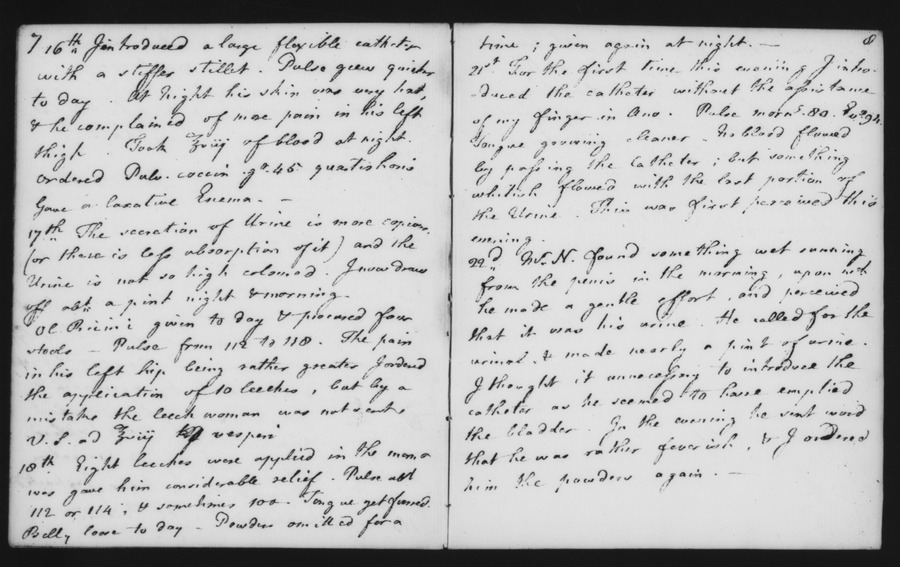 7
16th I introduced a large flexible catheter
with a stiffer stillet. Pulse grew quicker
to day. At Night his skin was very hot,
& he complained of more pain in his left
thigh. Took ℥viij of blood at night.
Ordered Pulv. coccin. gr 45 quartis horis
Gave a laxative Enema. —
17th. The secretion of Urine is more copious
(or there is less absorption of it) and the
Urine is not so high coloured. I now draw
off abt. a pint night & morning.
Ol Ricini given to day & procured four
stools — Pulse from 112 to 118. The pain
in his left hip being rather greater I ordered
the application of 10 leeches, but by a
mistake the leech woman was not sent.
V.S. ad ℥viij vesperi
18th Eight leeches were applied in the morng
was gave him considerable relief. Pulse abt
112 or 114, & sometimes 100. Tongue yet furred.
Belly loose to day — Powders omitted for a
8
time; given again at night. —
21st For the first time this evening I intro-
-duced the catheter without the assistance
of my finger in Ano. Pulse morng. 80. Evg 94.
Tongue growing cleaner. No blood flowed
by passing the Catheter; but something
whitish flowed with the last portion of
the Urine. This was first perceived this
evening.
22d Mr. N. found something wet running
from the penis in the morning, upon wch
he made a gentle effort, and perceived
that it was his urine. He called for the
urinal & made nearly a pint of urine.
I thought it unnecessary to introduce the
catheter as he seemed to have emptied
the bladder. In the evening he sent word
that he was rather feverish, & I ordered
him the powders again. —